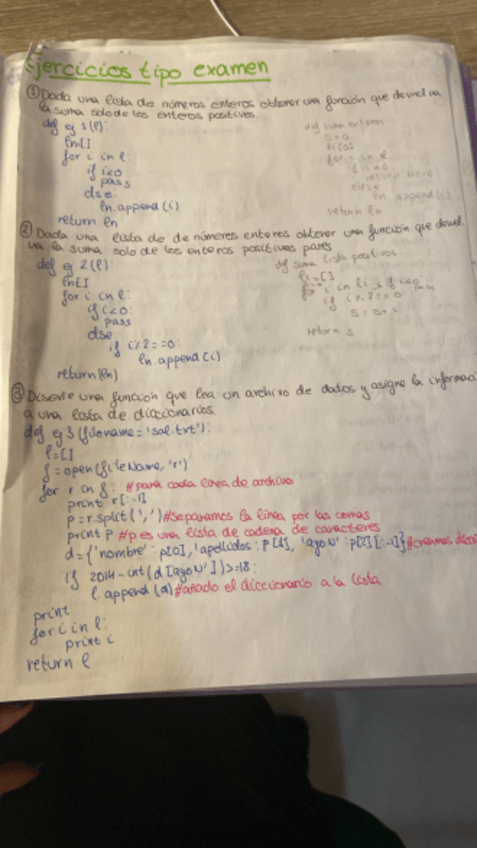 Ejercicios tipo examen
① Dada una lista de números enteros obtener una función que devuelva
la suma solo de los enteros positivos.
def ej 1(l):
ln[]
for i in l:
if i<0:
pass
else:
ln.append(i)
return ln
def suma enteros
s=0
for i in l:
if i<0
return None
else
ln append(i)
return ln
② Dada una lista de de números enteros obtener una función que devuel-
va la suma solo de los enteros positivos pares
def ej 2(l):
ln[]
for i in l:
if i<0:
pass
else
if i%2==0:
ln.append(i)
return(ln)
def suma lista positivos
l1=[]
for i in l
if i%2==0
return s
③ Diseñe una función que lea un archivo de datos y asigne la informaci
a una lista de diccionarios
def ej 3(filename='sal.txt'):
l=[]
f=open(fileName,'r')
for r in f: #para cada línea de archivo
print r[:-1]
p=r.split(',')#separamos la línea por las comas
print p #p es una lista de cadena de caracteres
d={'nombre': p[0], 'apellidos': p[1], 'agoN': p[2][:-1]}#creamos dicci
if 2014-int(d['agoN'])>=18:
l.append(d)#añado el diccionario a la lista
print
for i in l:
print i
return l